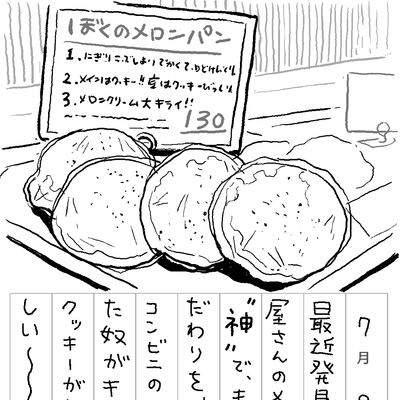 ぼくのメロンパン
1. にぎりこぶしよりでかくて、
2. メインはクッキー!!
3. メロンクリーム大キライ!!
130
7月
最近発見
屋さんのメ
"神"で、
だわりを
コンビニの
た奴がキ
クッキーが
しい〜〜